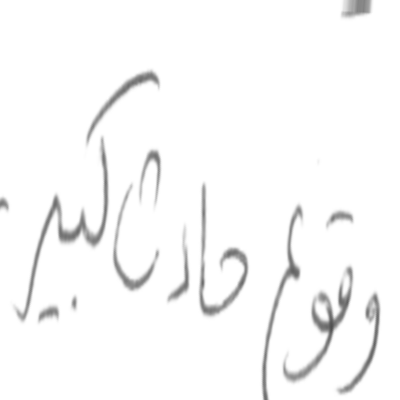 وقوع حادث كبير